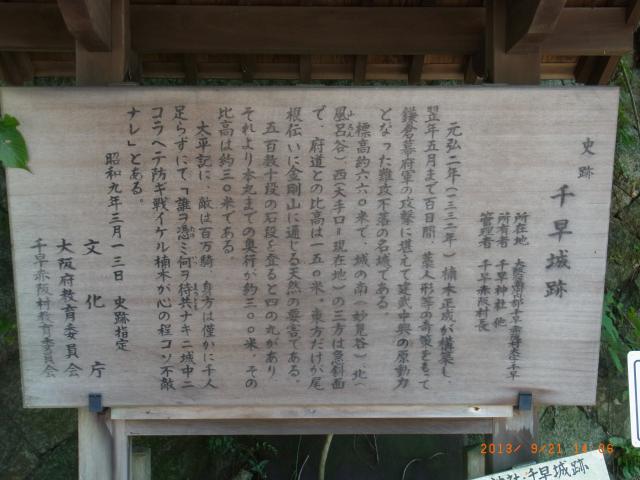 史跡 千早城跡
所在地 大阪府南河内郡千早赤阪村大字千早
所有者 千早神社 他
管理者 千早赤阪村長
元弘二年(一三三二年)楠木正成が構築し、
翌年五月まで百日間、藁人形等の奇策をもって
鎌倉幕府軍の攻撃に堪えて建武中興の原動力
となった難攻不落の名城である。
標高約六六〇米で、城の南(妙見谷)、北(
風呂谷)西(大手口=現在地)の三方は急斜面
で、府道との比高は一五〇米。東方だけが尾
根伝いに金剛山に通じる天然の要害である。
五百数十段の石段を登ると四の丸があり
それより本丸までの奥行が約三〇〇米、その
比高は約三〇米である
太平記に、敵は百万騎 身方は僅かに千人
足らずにて「誰ヲ憑ミ何ヲ待共ナキニ城中ニ
コラヘテ防ギ戦イケル楠木が心の程コソ不敵
ナレ」とある。
昭和九年三月一三日 史跡指定
文化庁
大阪府教育委員会
千早赤阪村教育委員会
2013/ 9/21 14:06
神社・千早城跡